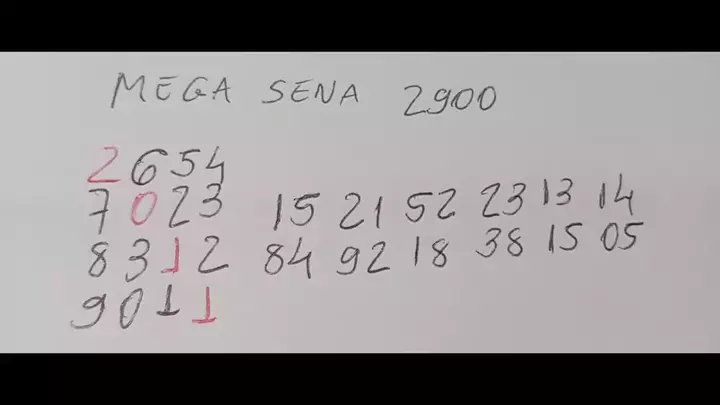 MEGA SENA 2900
2654
7023 15 21 52 23 13 14
8312 84 92 18 38 15 05
9011